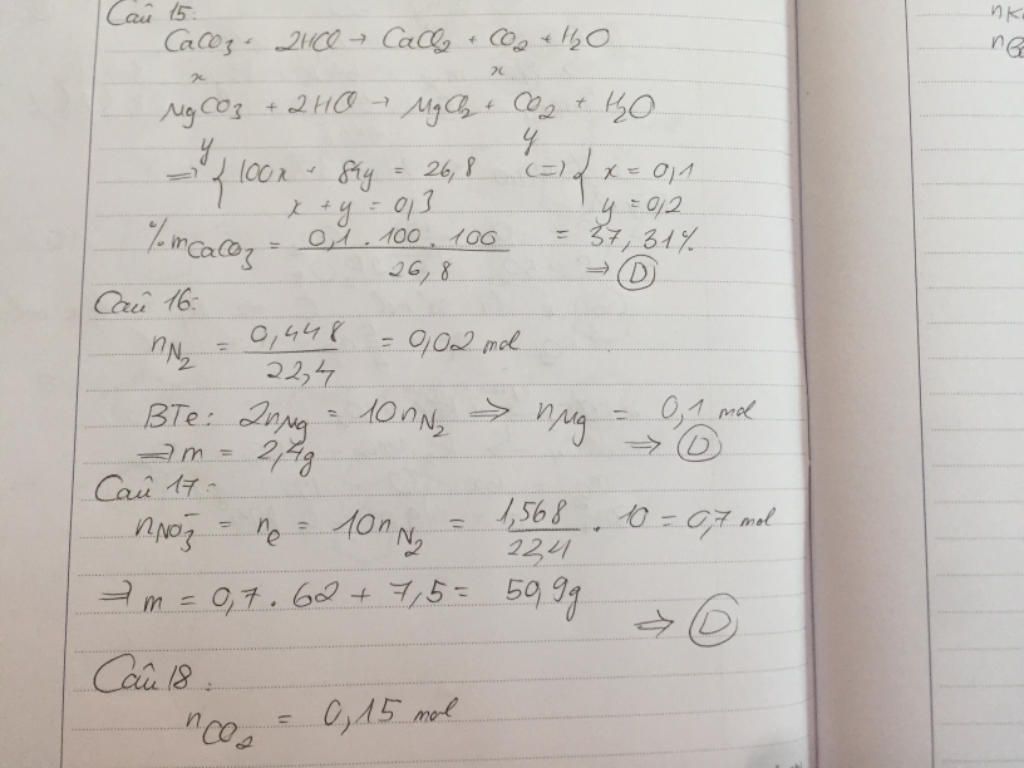 Câu 15:
CaCO3 + 2HCl → CaCl2 + CO2 + H2O
x x
MgCO3 + 2HCl → MgCl2 + CO2 + H2O
y y
=> { 100x + 84y = 26,8 (=) { x = 0,1
x + y = 0,3 y = 0,2
%mCaCO3 = 0,1 . 100 . 100 / 26,8 = 37,31%
=> D
Câu 16:
nN2 = 0,448 / 22,4 = 0,02 mol
BTe: 2nMg = 10nN2 => nMg = 0,1 mol
=> m = 2,4g => D
Câu 17:
nNO3- = ne = 10nN2 = 1,568 / 22,4 . 10 = 0,7 mol
=> m = 0,7 . 62 + 7,5 = 50,9g
=> D
Câu 18:
nCO2 = 0,15 mol